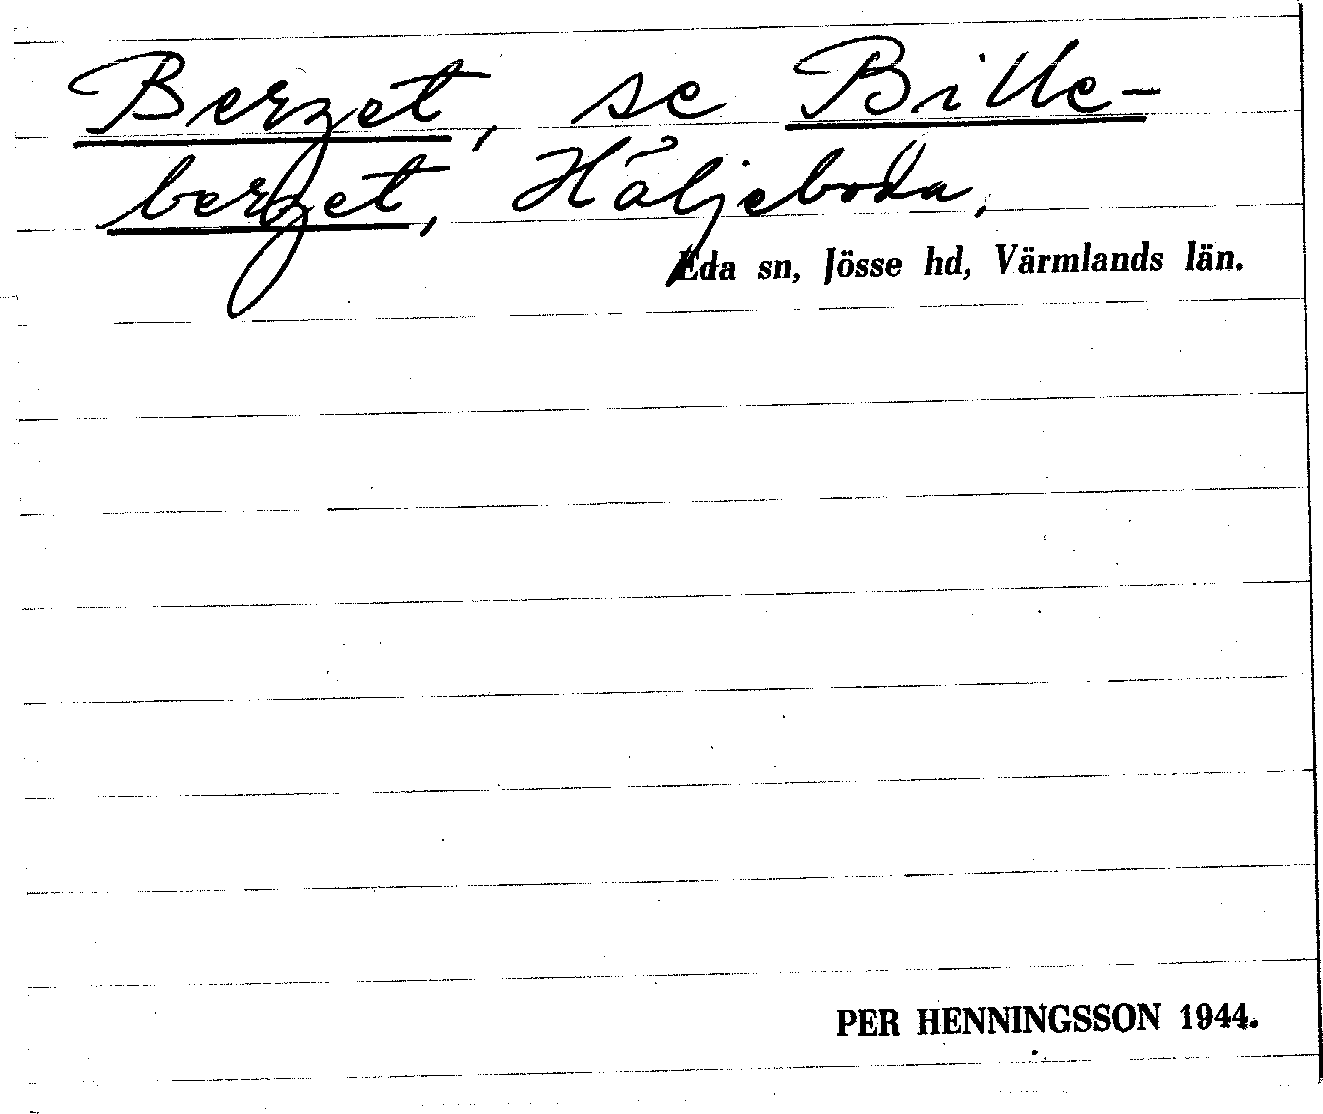 Berget, se Bille-
berget, Häljeboda,
Eda sn, Jösse hd, Värmlands län.
PER HENNINGSSON 1944.